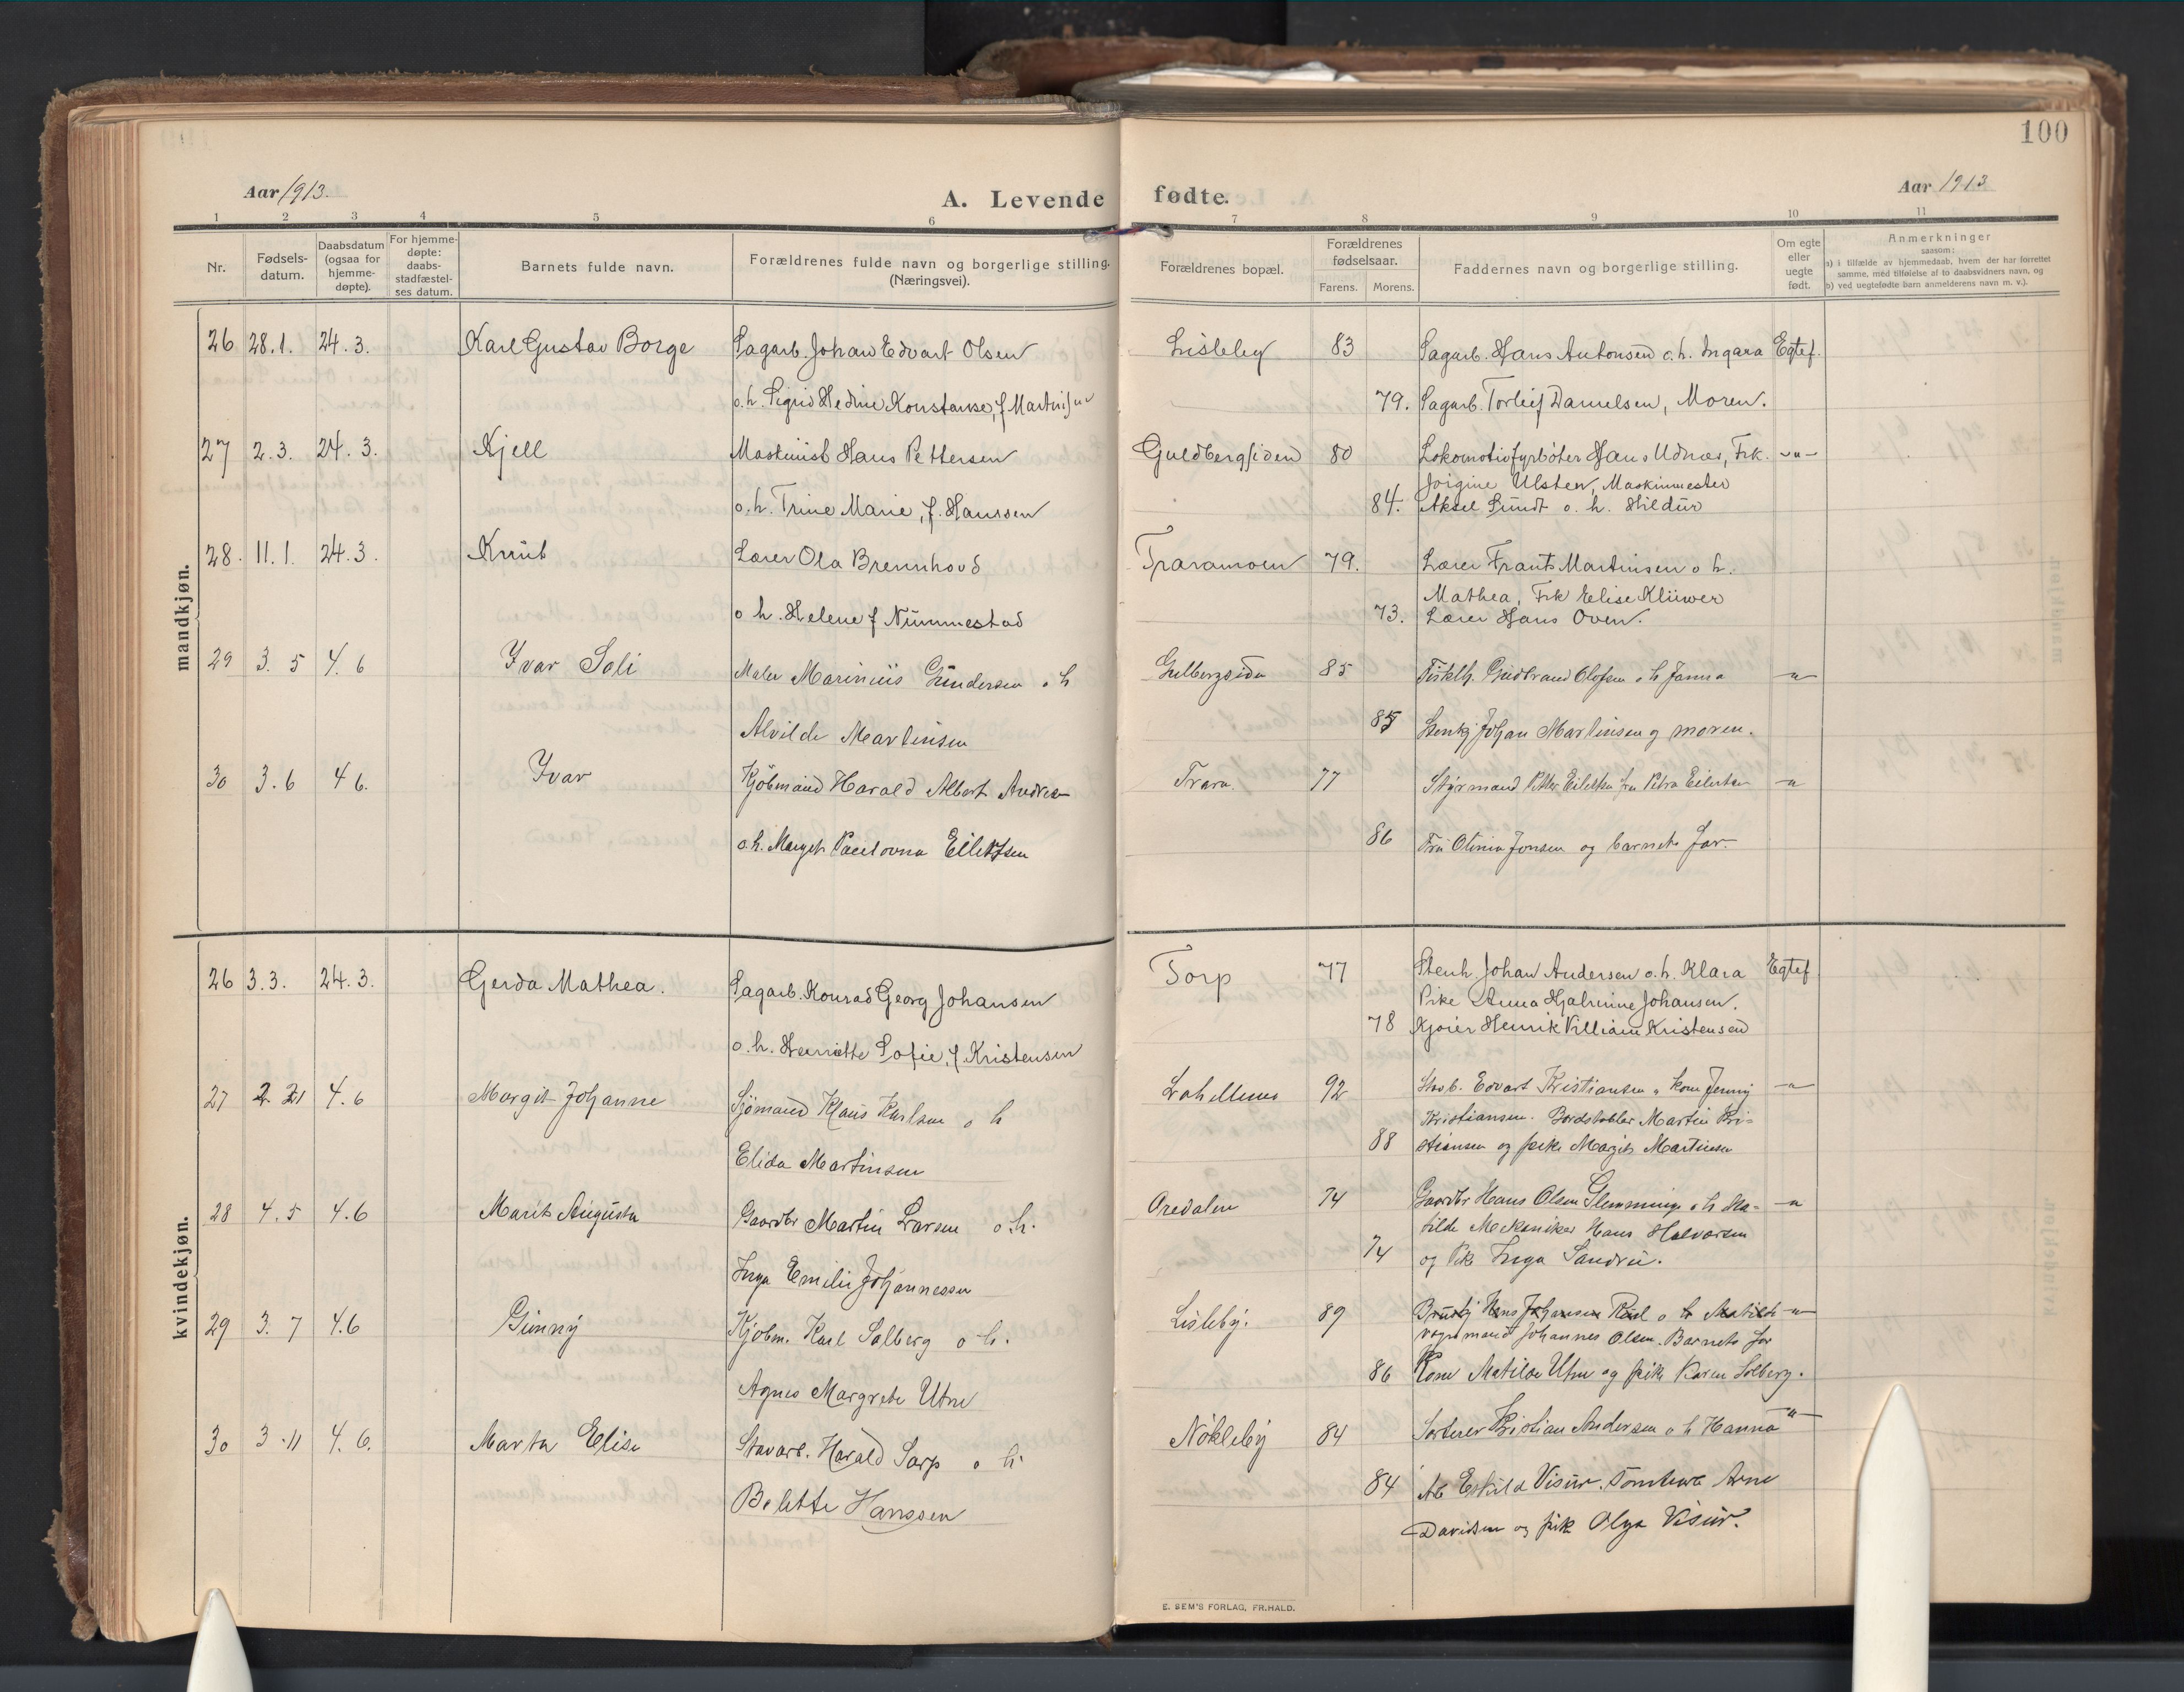 100
Aar 1913.
A. Levende fødte.
Aar 1913
1 2 3 4 5 6 7 8 9 10 11
Nr.
Fødsels-
datum.
Daabsdatum
(ogsaa for
hjemme-
døpte).
For hjemme-
døpte:
daabs-
stadfæstel-
ses datum.
Barnets fulde navn.
Forældrenes fulde navn og borgerlige stilling.
(Næringsvei).
Forældrenes bopæl.
Forældrenes
fødselsaar.
Farens. Morens.
Faddernes navn og borgerlige stilling.
Om egte
eller
uegte
født.
Anmerkninger
saasom:
a) i tilfælde av hjemmedaab, hvem der har forrettet
samme, med tilføielse af to daabsvidners navn, og
b) ved uegtefødte barn anmelderens navn m. v.).
mandkjøn.
26 28.1. 24.3. Karl Gustav Borge Sagarb. Johan Edvart Olsen Lisleby 83 Sagarb. Hans Antonsen o.h. Ingara Egtef.
o.h. Sigrid Hedine Konstanse, f. Martinsen 79. Sagarb. Torleif Danielsen, Moren.
27 2.3. 24.3. Kjell Maskinist Hans Pettersen Guldbergsiden 80 Lokomotivfyrbøter Hans Udnæs, Frk. -"-
Jørgine Ulsten, Maskinmester
o.h. Trine Marie, f. Hanssen 84. Aksel Sundt o. h. Hildur
28. 11.1. 24.3. Knut Lærer Ola Brennhovd Traramoen 79. Lærer Frants Martinsen o h.
Mathea, Frk Elise Klüwer
o h. Helene f Nummestad 73. Lærer Hans Oven.
29 3.5 4.6 Ivar Soli Maler Marinius Gundersen o h Gulbergsiden 85 Gudbrand Olofsen o h Janna -"-
Alvilde Martinsen 85 Stenhj Johan Martinsen og moren.
30 3.6 4 6. Ivar Kjøbmand Harald Albert Andresen Trara. 77 Styrmand Petter Eilertsen fru Petra Eilertsen -"-
o.h. Margit Eilertsen 86 Fru Olivia Jonsen og barnets far.
kvindekjøn.
26 3.3. 24.3. Gerda Mathea. Sagarb. Konrad Georg Johansen Torp 77 Stenh. Johan Andersen o.h. Klara Egtef
Pike Anna Hjalmine Johansen.
o.h. Henriette Sofie, f. Kristensen 78 Kjører Henrik Villiam Kristensen
27 2.21 4.6 Margit Johanne Sjömand Klaus Karlsen o h 92 Edvart Kristiansen, kone Jenny -"-
Kristiansen. Bordstabler Martin Kri=
Elida Martinsen 88 stiansen og pike Margit Martinsen
28 4.5 4.6 Marit Augusta Gaardbr Martin Larsen o.h. Oredalen 74 Gaardbr Hans Olsen Glemminge o h Ma= -"-
tilde Mekaniker Hans Halvorsen
Inga Emilie Johannessen 74 og Pike Inga Sandvei.
29 3.7 4.6 Gunny Kjöbm. Karl Solberg o h. Lisleby. 89 Hans Johansen o h Matilde -"-
vognmand Johannes Olsen. Barnets far
Agnes Margrete Utne 86 Kone Matilde Utne og pike Karen Solberg.
30 3.11 4.6. Marta Elise Stuvarb. Harald Sarp o h. Nökleby 84 Sorterer Kristian Andersen o h Hanna -"-
Belette Hanssen 84 Arb Eskild Visur. Arne
Davidsen og pike Olga Visur.
E. SEM'S FORLAG, FR.HALD.